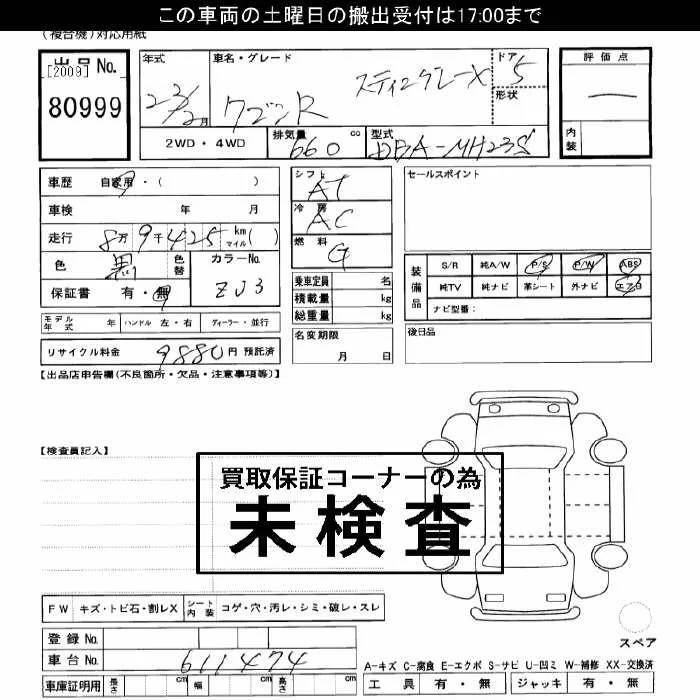 この車両の土曜日の搬出受付は17:00まで
(複合機)対応用紙
出品No.
[2009]
80999
年式
月
車名・グレード
ワゴンR
スティングレーX
ドア
5
形状
評価点
内装
2WD・4WD
排気量
660
cc
型式
DBA-MH23S
車歴 自家用・( )
車検 年 月
走行 8万9千425 km マイル( )
色 黒 色替 カラーNo.
ZJ3
保証書 有・無
シフト
AT
冷房
AC
燃料
G
乗車定員 名
積載量 kg
総重量 kg
名変期限
月 日
セールスポイント
装備品
S/R 純A/W P/S P/W ABS
純TV 純ナビ 革シート 外ナビ エアB
ナビ型番:
後日品
モデル年式 年 ハンドル 左・右 ディーラー・並行
リサイクル料金 9880円 預託済
【出品店申告欄(不良箇所・欠品・注意事項等)】
【検査員記入】
買取保証コーナーの為
未検査
FW キズ・トビ石・割レX シート内装 コゲ・穴・汚レ・シミ・破レ・スレ
登録No.
車台No. 611474
車庫証明用 長さ cm 幅 cm 高さ cm
スペア
A-キズ C-腐食 E-エクボ S-サビ U-凹ミ W-補修 XX-交換済
工具 有・無 ジャッキ 有・無